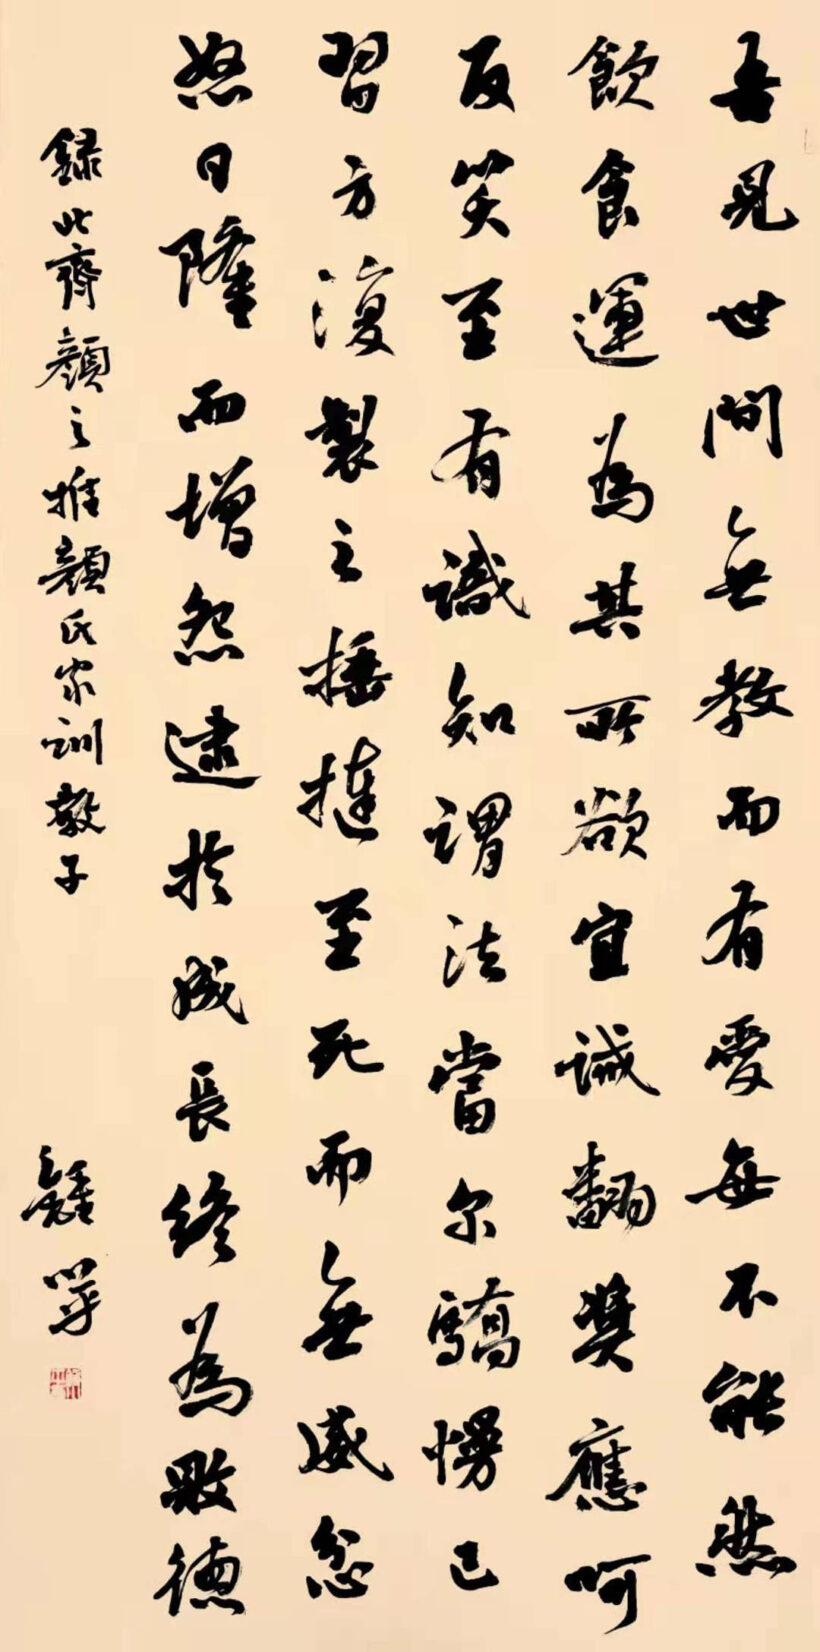 吾見世間無教而有愛每不能然
飲食運為其所欲宜誡翻獎應呵
反笑至有識知謂法當尔驕慢已
習方復製之捶撻至死而無威忿
怒日隆而增怨逮於成長終為敗德
録此齊顏之推顏氏家訓教子